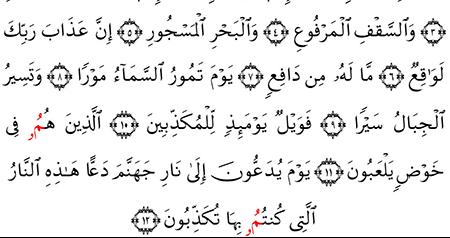 ﴿٣﴾ وَٱلسَّقْفِ ٱلْمَرْفُوعِ ﴿٤﴾ وَٱلْبَحْرِ ٱلْمَسْجُورِ ﴿٥﴾ إِنَّ عَذَابَ رَبِّكَ
لَوَٰقِعٌ ﴿٦﴾ مَّا لَهُۥ مِن دَافِعٍ ﴿٧﴾ يَوْمَ تَمُورُ ٱلسَّمَآءُ مَوْرًا ﴿٨﴾ وَتَسِيرُ
ٱلْجِبَالُ سَيْرًا ﴿٩﴾ فَوَيْلٌ يَوْمَئِذٍ لِّلْمُكَذِّبِينَ ﴿١٠﴾ ٱلَّذِينَ هُمُۥ فِى
خَوْضٍ يَلْعَبُونَ ﴿١١﴾ يَوْمَ يُدَعُّونَ إِلَىٰ نَارِ جَهَنَّمَ دَعًّا هَـٰذِهِ ٱلنَّارُ
ٱلَّتِى كُنتُمُۥ بِهَا تُكَذِّبُونَ ﴿١٢﴾